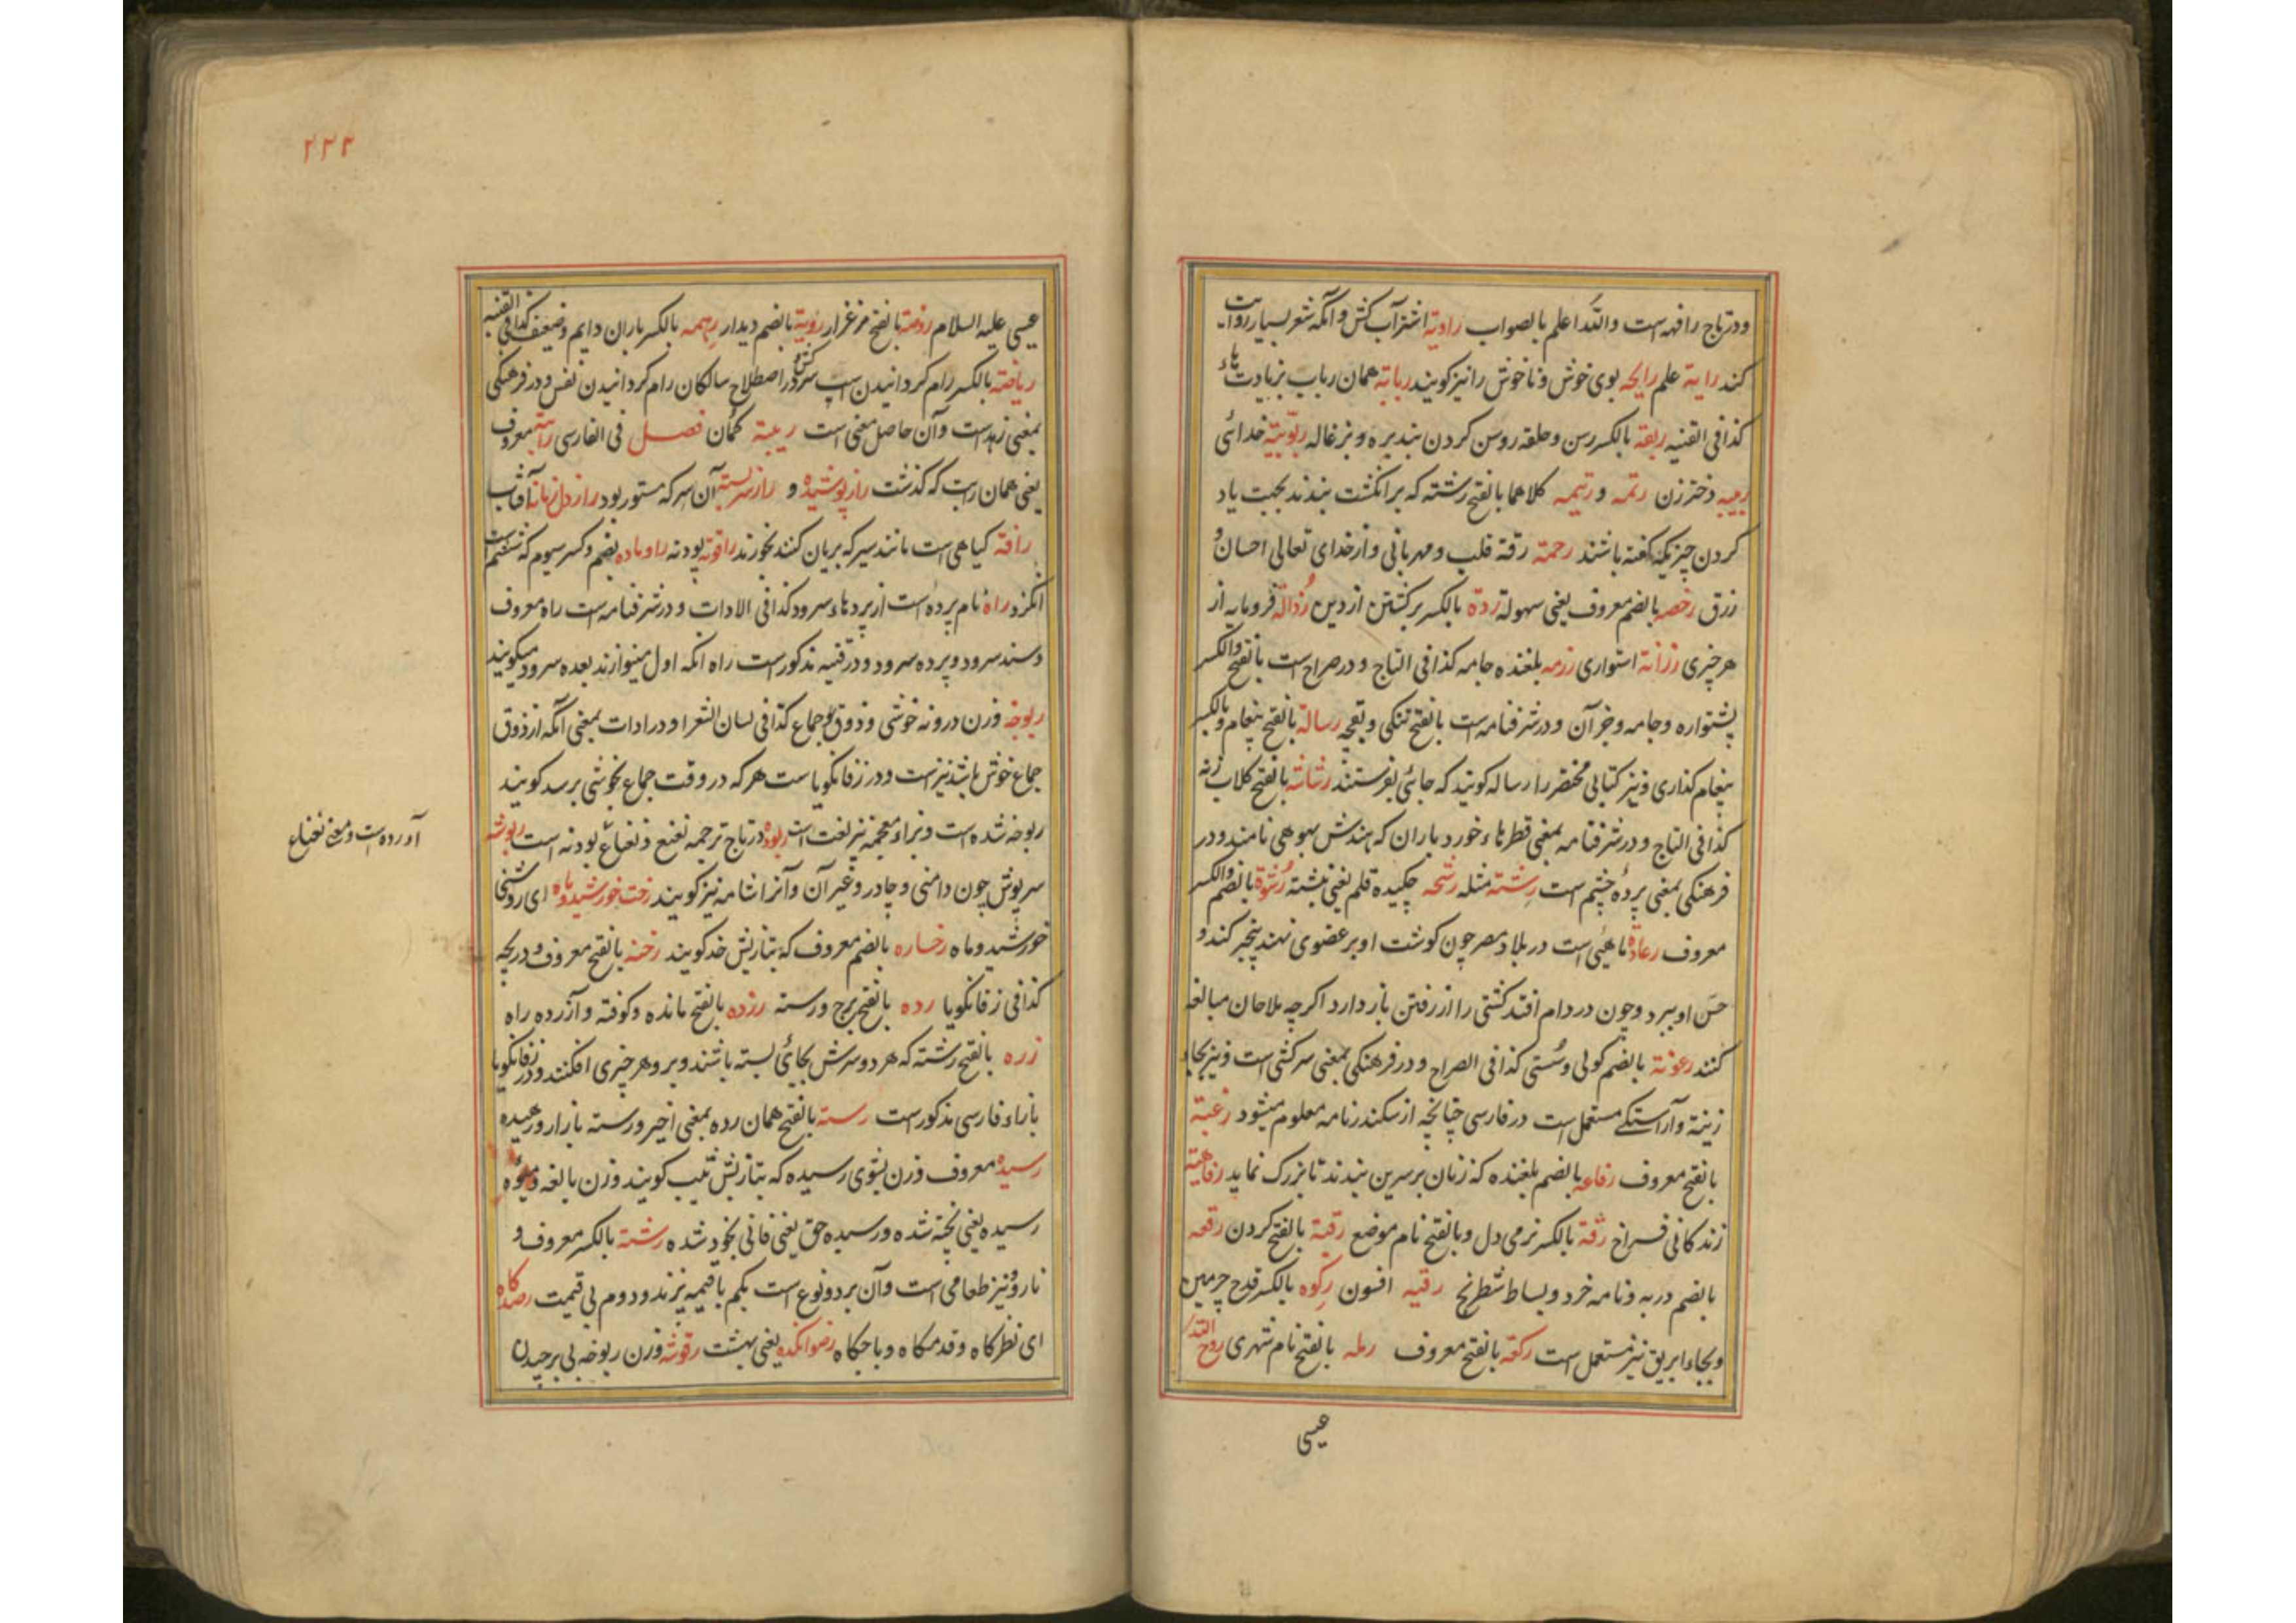 ودر تاج رافهه است والله اعلم بالصواب راویة اشتر آب کش و آنکه شعر بسیار روایت
کند رایة علم رایحه بوی خوش و ناخوش را نیز کویند ربابة همان رباب بزیادت هاء
کذا فی القنیه ربقة بالکسر رسن و حلقه رسن کردن بند بره و بزغاله ربوبیة خدائی
ربیبه دختر زن رتمه و رتیمه کلاهما بالفتح رشته که بر انکشت بندند بجهت یاد
کردن چیزیکه کفته باشند رحمة رقة قلب و مهربانی و از خدای تعالی احسان و
رزق رخصه بالضم معروف یعنی سهولة ردة بالکسر برکشتن از دین رذالة فرومایه از
هر چیزی رزانة استواری رزمه بلغنده جامه کذا فی التاج و در صراح است بالفتح والکسر
پشتواره و جامه و جز آن و در شرفنامه است بالفتح تنکی و بقچه رسالة بالفتح پیغام و بالکسر
پیغام کذاری و نیز کتابی مختصر را رساله کویند که جائی بفرستند رشاشة بالفتح کلاب زنه
کذا فی التاج و در شرفنامه بمعنی قطرهاء خورد باران که هندش بهوهی نامند و در
فرهنکی بمعنی پردهٔ چشم است رشته مثله رشحه چکیده قلم یعنی نبشته رشوة بالضم والکسر
معروف رعاده ماهئی است در بلاد مصر چون کوشت او بر عضوی نهند بیخبر کند و
حس او ببرد و چون در دام افتد کشتی را از رفتن باز دارد اکرچه ملاحان مبالغه
کنند رعونة بالضم کولی و سستی کذا فی الصراح و در فرهنکی بمعنی سرکشی است و نیز بجاء
زینة و آراستکی مستعمل است در فارسی چنانچه از سکندرنامه معلوم میشود رغبة
بالفتح معروف رفاعه بالضم بلغنده که زنان بر سرین بندند تا بزرک نماید رفاهیة
زندکانی فراخ رقة بالکسر نرمی دل و بالفتح نام موضع رقبة بالفتح کردن رقعه
بالضم دربه و نامه خرد و بساط شطرنج رقیه افسون رکوه بالکسر قدح چرمین
و بجاء ابریق نیز مستعمل است رکعة بالفتح معروف رمله بالفتح نام شهری روح الله
عیسی
۲۲۲
عیسی علیه السلام روضة بالفتح مرغزار رویة بالضم دیدار رهمه بالکسر باران دایم و ضعیف کذا فی القنیه
ریاضة بالکسر رام کردانیدن اسپ سرکش و در اصطلاح سالکان رام کردانیدن نفس و در فرهنکی
بمعنی زهد است و آن حاصل معنی است ریبة کمان فصل فی الفارسی معروف
یعنی همان راست که کذشت راز پوشیده و راز سربسته آن سر که مستور بود راز دل زمانه آفتاب
رافه کیاهی است مانند سیر که بریان کنند بخورند راقوته پودنه راوماده بضم و کسر سیوم که ششم است
انکزد راه نام پرده است از پردهاء سرود کذا فی الادات و در شرفنامه است راه معروف
و سند سرود و پرده سرود و در قنیه مذکور است راه انکه اول مینوازند بعده سرود میکویند
ربوخه وزن درونه خوشی و ذوق جماع کذا فی لسان الشعرا و در ادات بمعنی آنکه از ذوق
جماع خوش باشد نیز است و در زفانکویا ست هر که در وقت جماع بخوشی برسد کویند
ربوخه شده است و براء معجمه نیز لغت است ربوه در تاج ترجمه نعنع و نعناع پودنه است ربوشه
آورده است و معنی نعناع
سرپوش چون دامنی و چادر و غیر آن و آنرا شامه نیز کویند رخت خورشید و ماه ای روشنی
خورشید و ماه رخساره بالضم معروف که بتازیش خد کویند رخنه بالفتح معروف و دریچه
کذا فی زفانکویا رده بالفتح برج و رسته رزده بالفتح مانده و کوفته و آزرده راه
رزه بالفتح رشته که هر دو سرش بجائی بسته باشند و بر و هر چیزی افکنند و در زفانکویا
بازاء فارسی مذکور است رسته بالفتح همان رده بمعنی اخیر و رسته بازار و رهیده
رسیده معروف و زن بشوی رسیده که بتازیش ثیب کویند و زن بالغه و میوهٔ
رسیده یعنی پخته شده و رسیده حق یعنی فانی بخود شده رشته بالکسر معروف و
نارو و نیز طعامی است و آن بر دو نوع است یکم با قیمه پزند و دوم بی قیمت رصدکاه
ای نظرکاه و قدمکاه و باجکاه رضوانکده یعنی بهشت رقوشه وزن ربوخه بی برچیدن